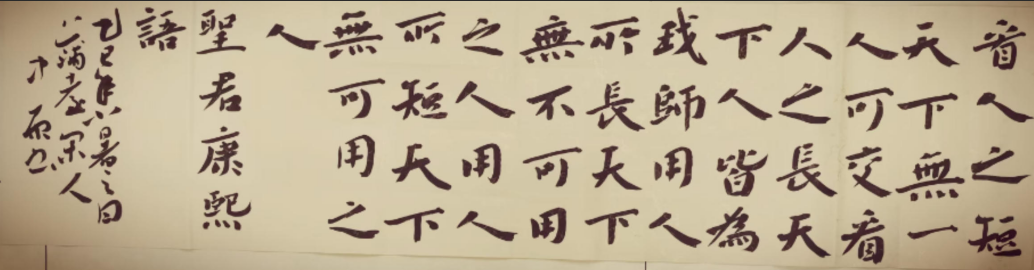 看人之短
天下無一
人可交看
人之長天
下人皆為
我師用人
所長天下
無不可用
之人用人
所短天下
無可用之
人
聖君康熙
語
乙巳年小暑之日